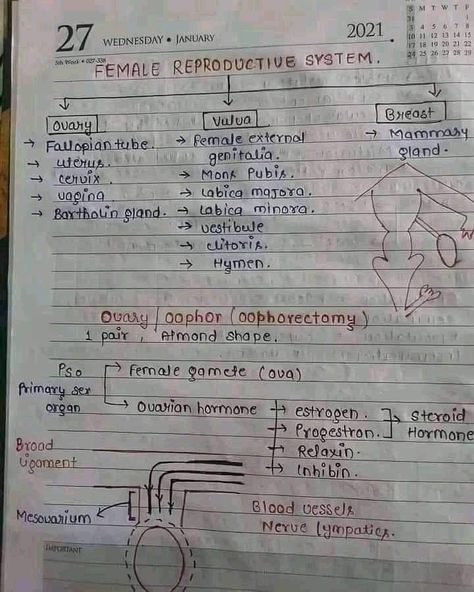 27 WEDNESDAY • JANUARY 2021
5th Week • 027-338
S M T W T F S
31
3 4 5 6 7 8 9
10 11 12 13 14 15 16
17 18 19 20 21 22 23
24 25 26 27 28 29 30
FEMALE REPRODUCTIVE SYSTEM.
Ovary Valva Breast
→ Fallopian tube. → Female external → Mammary
→ uterus. genitalia. gland.
→ cervix. → Mons Pubis.
→ vagina. → Labica majora.
→ Bartholin gland. → Labica minora.
→ vestibule
→ clitoris.
→ Hymen.
Ovary / oophor (oophorectomy)
1 pair, Almond shape.
PSO → Female gamete (ova)
Primary sex
organ → Ovarian hormone → estrogen. → Steroid
→ Progestron. Hormone
→ Relaxin.
→ Inhibin.
Broad
ligament
Mesovarium
Blood vessels
Nerve lympatics.
IMPORTANT